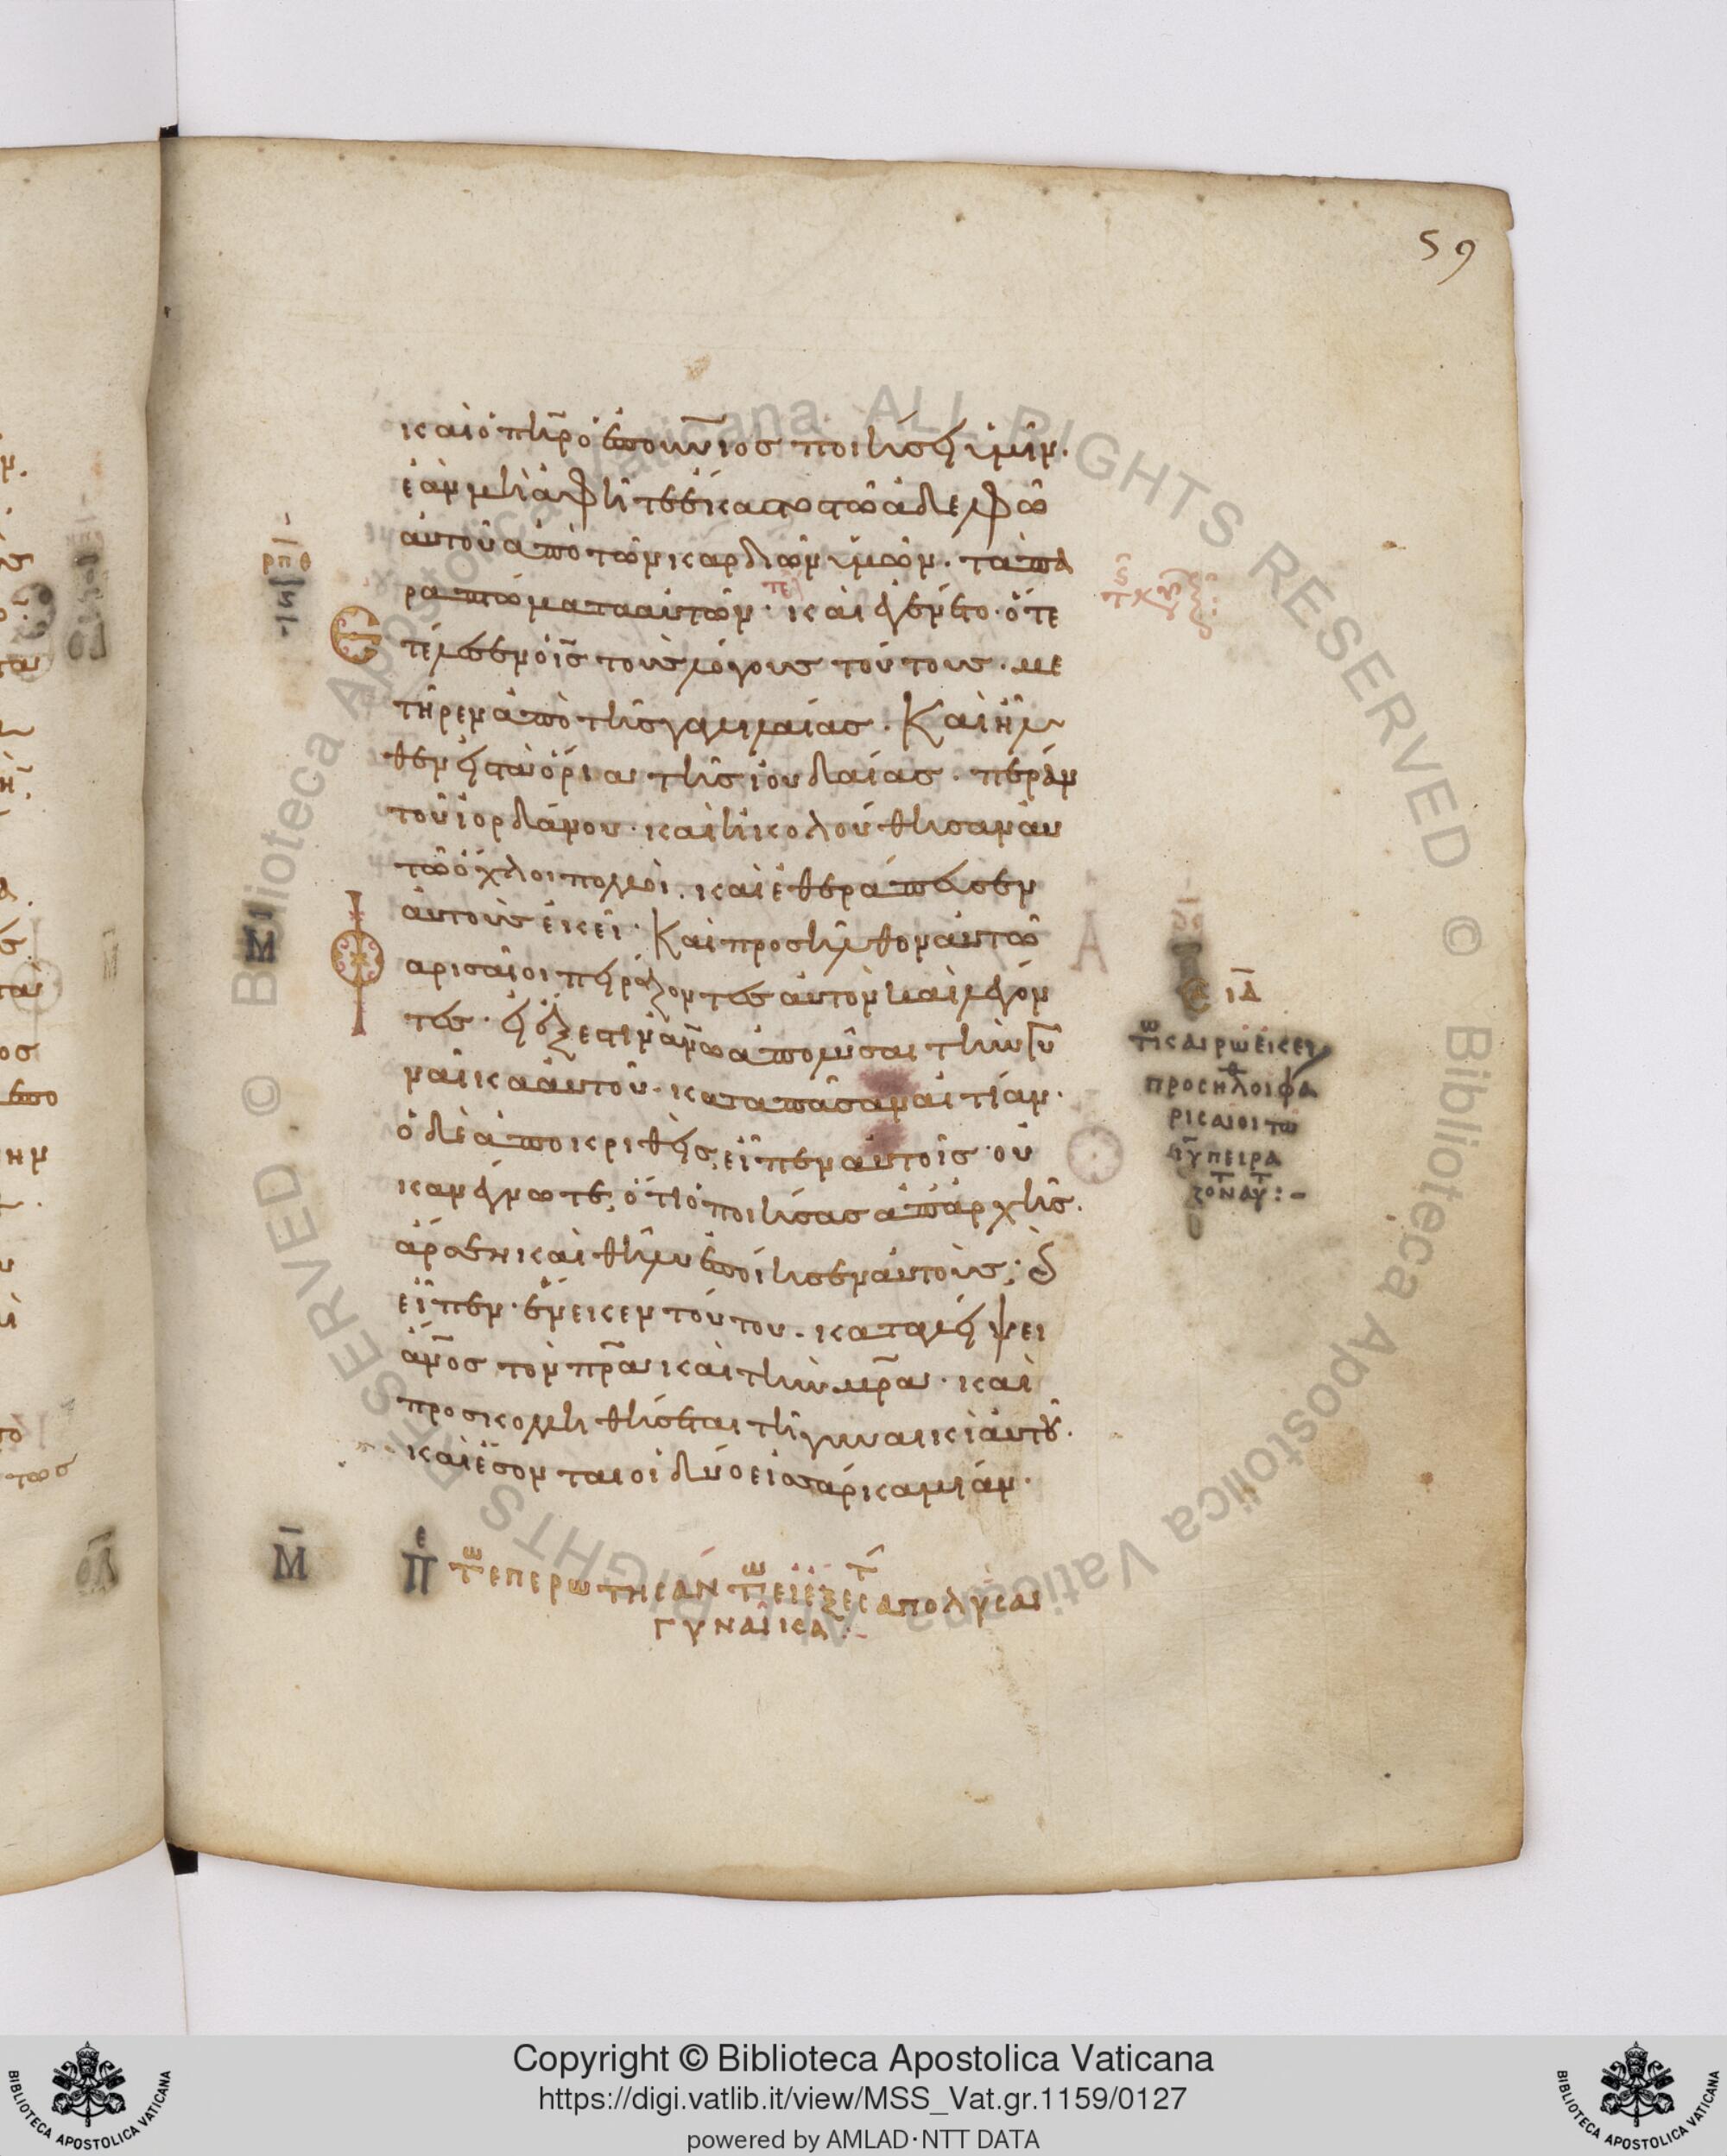 59
καὶ ὁ πη̅ρ ὁ ἐπουν̅ιος ποιήσει ὑμῖν.
ἐὰν μὴ ἀφῆτε ἕκαστος τῶ ἀδελφῶ
ἀυτοῦ ἀπὸ τῶν καρδιῶν ὑμῶν. τὰ πα
ραπτώματα αὐτῶν. καὶ ἐγένετο. ὅτε
ετέλεσεν ὁ ις̅ τοὺς λόγους τούτους. με
τῆρεν ἀπὸ τῆς γαλιλαίας. Καὶ ἦλ
θεν εἰς τὰ ὅρια τῆς ἰουδαίας. πέραν
τοῦ ἰορδάνου. καὶ ἠκολούθησαν αὐ
τῶ ὄχλοι πολλοὶ. καὶ ἐθεράπευσεν
ἀυτοὺς ἐκεῖ. Καὶ προσῆλθον ἀυτῶ
φαρισαῖοι πειράζοντες αὐτὸν καὶ λέγον
τες. εἰ ἔξεστιν ἀνω̅ ἀπολῦσαι τὴν γυ
ναῖκα ἀυτοῦ. κατα πᾶσαν αἰτίαν.
ὁ δὲ ἀποκριθεὶς, εἶπεν αὐτοῖς. οὐ
κ ἀνέγνωτε, ὅτι ὁ ποιήσας ἀπ' ἀρχῆς.
ἄρσεν καὶ θῆλυ ἐποίησεν αὐτούς; ὃ
εἶπεν. ἕνεκεν τούτου. καταλείψει
ἄνο̅ς τὸν πρ̅α καὶ τὴν μρ̅α. καὶ
προσκολληθήσεται τῆ γυναικὶ αὐτοῦ.
καὶ ἔσονται οἱ δύο εἰς σάρκα μίαν.
ρπθ
Μ
Α
ιδ̅
τω καιρω εκει
προσηλθ οι φα
ρισαιοι τω
ιυ̅ πειρα
ζοντ αυτ :-
Μ̅
πε τω επερωτησαντω ει εξεστ απολυσαι
γυναικα:-
Copyright © Biblioteca Apostolica Vaticana
https://digi.vatlib.it/view/MSS_Vat.gr.1159/0127
powered by AMLAD·NTT DATA
BIBLIOTECA APOSTOLICA VATICANA
BIBLIOTECA APOSTOLICA VATICANA
© Biblioteca Apostolica Vaticana ALL RIGHTS RESERVED © Biblioteca Apostolica Vaticana ALL RIGHTS RESERVED